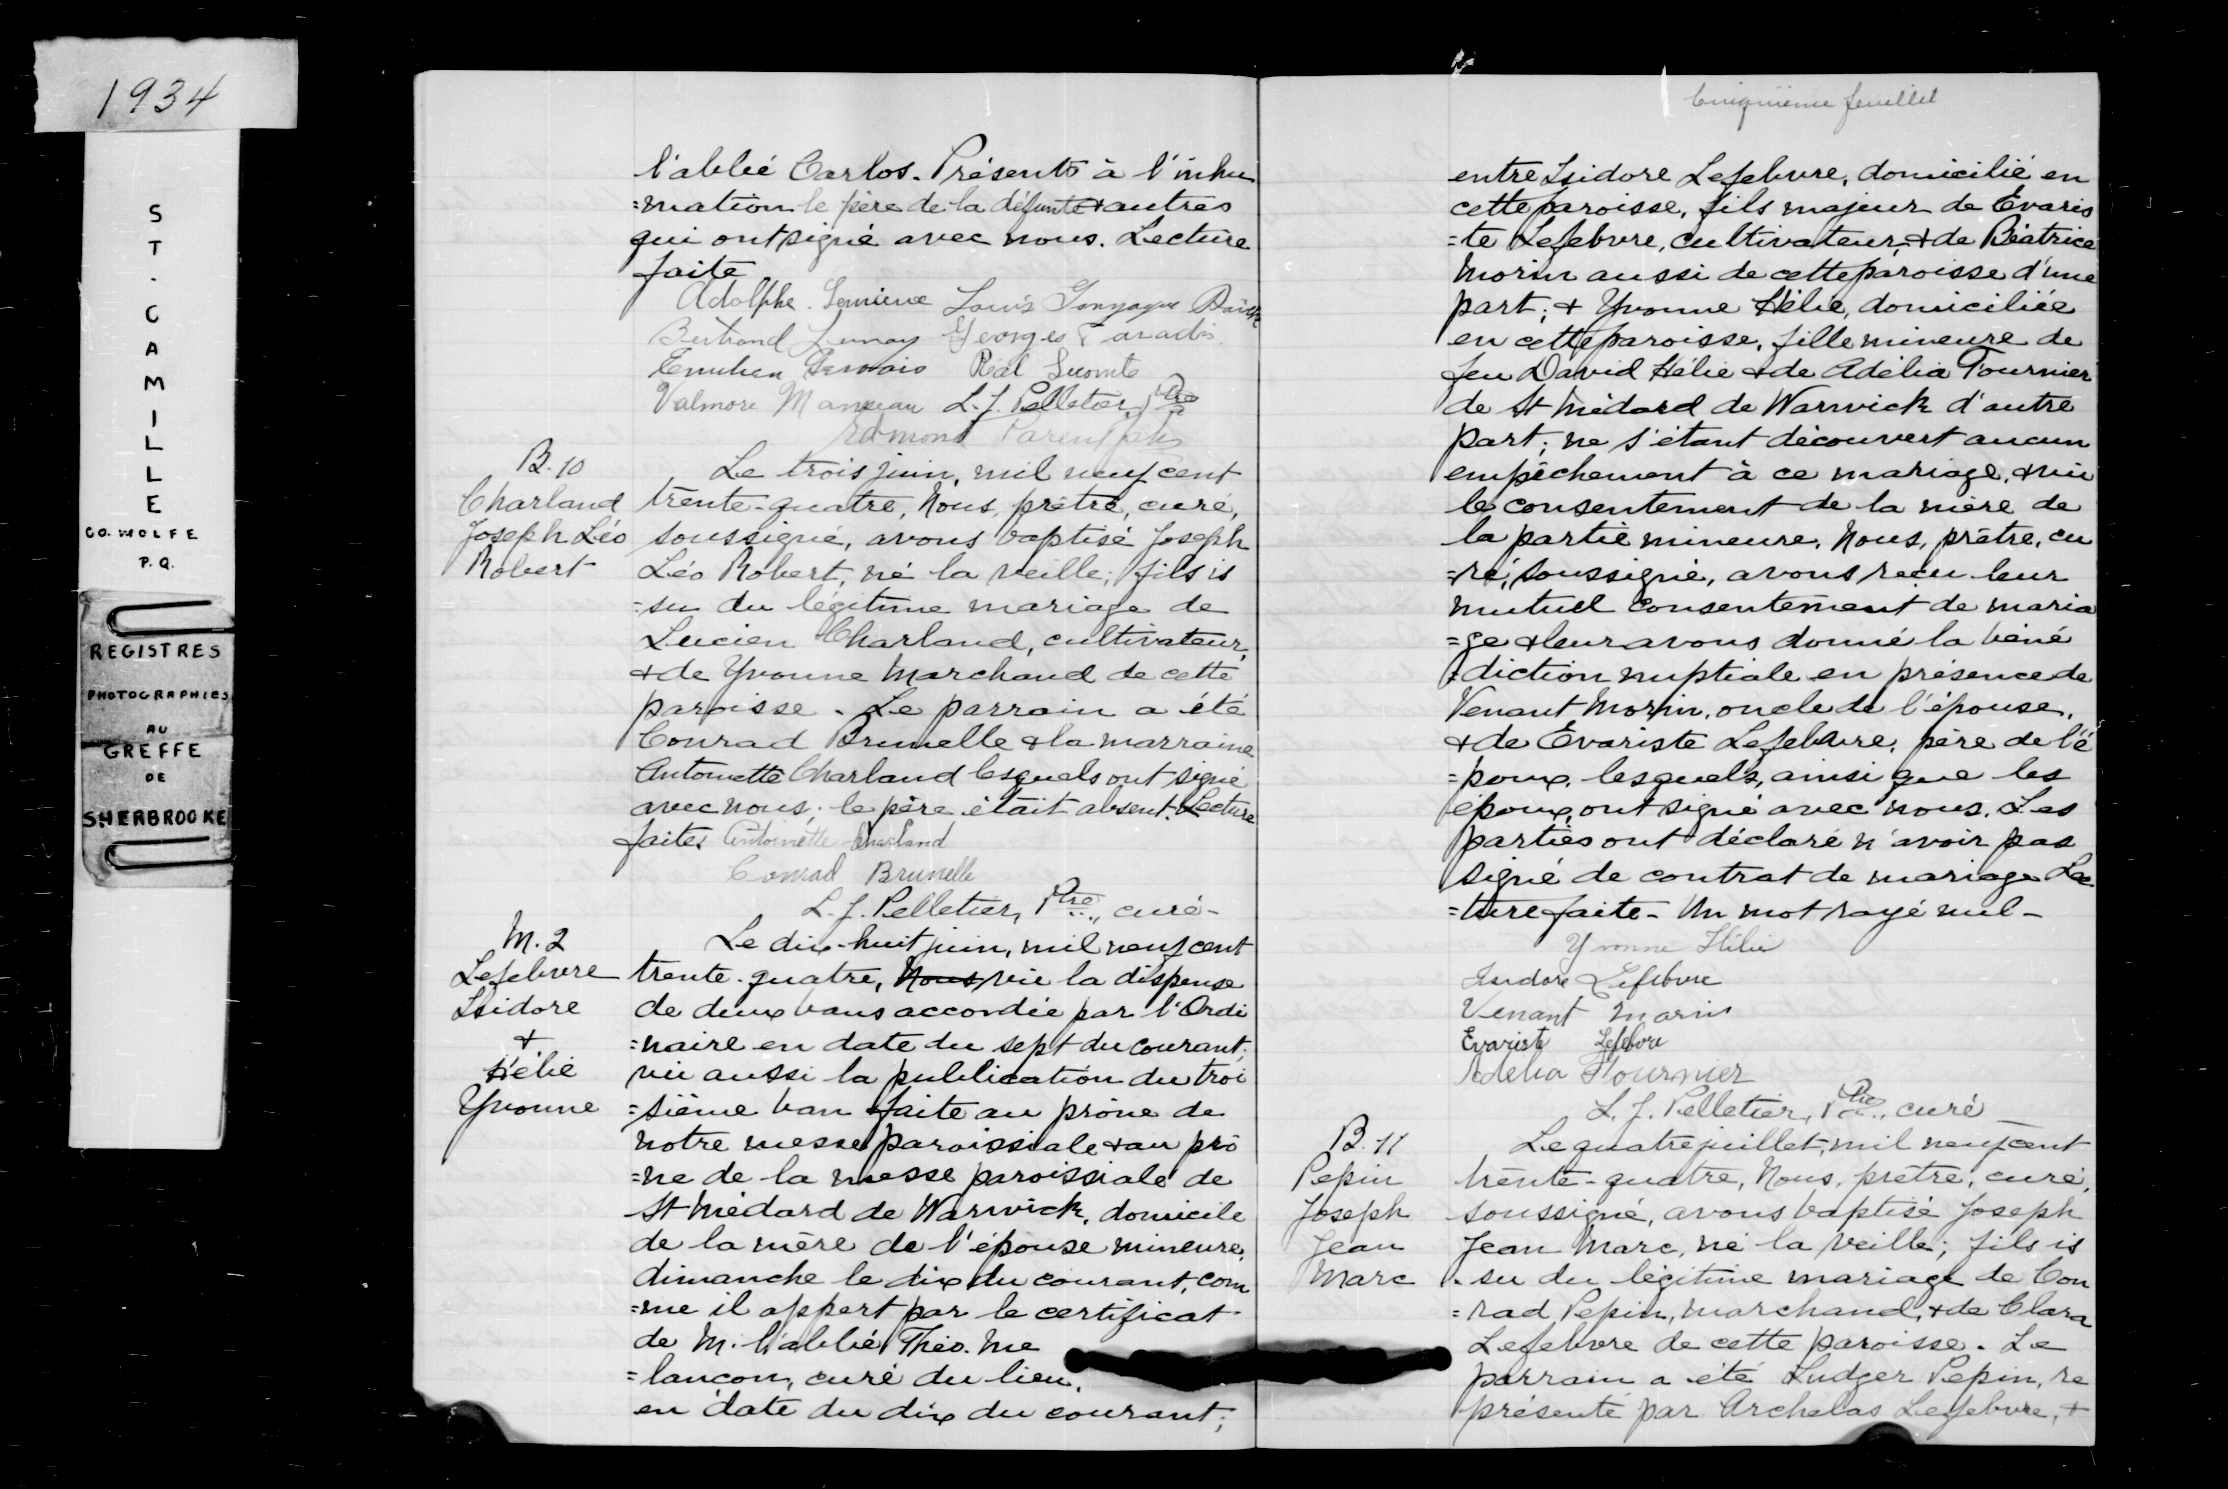 1934
ST. CAMILLE
CO. WOLFE
P.Q.
REGISTRES
PHOTOGRAPHIES
AU
GREFFE
DE
SHERBROOKE
l'abbé Carlos. Présents à l'inhu
=mation le père de la défunte & autres
qui ont signé avec nous. Lecture
faite
Adolphe Lemieux Louis Gonzague
Bertrand Lemay Georges Paradis
Emilien Gervais Réal Lecomte
Valmore Manseau L. J. Pelletier, Ptre
Edmond Parent ptre
B. 10
Charland
Joseph Léo
Robert
Le trois juin, mil neuf cent
trente-quatre, Nous, prêtre, curé,
soussigné, avons baptisé Joseph
Léo Robert, né la veille; fils is
=su du légitime mariage de
Lucien Charland, cultivateur,
& de Yvonne Marchand de cette
paroisse. Le parrain a été
Conrad Brunelle & la marraine
Antoinette Charland lesquels ont signé
avec nous; le père était absent. Lecture
faite. Antoinette Charland
Conrad Brunelle
L. J. Pelletier, Ptre., curé-
M. 2
Lefebvre
Isidore
&
Hélie
Yvonne
Le dix-huit juin, mil neuf cent
trente-quatre, Nous vu la dispense
de deux bans accordée par l'Ordi
=naire en date du sept du courant;
vu aussi la publication du troi
=sième ban faite au prône de
notre messe paroissiale & au prô
=ne de la messe paroissiale de
St Médard de Warwick, domicile
de la mère de l'épouse mineure,
dimanche le dix du courant, com
=me il appert par le certificat
de M. l'abbé Théo. Me
=lançon, curé du lieu,
en date du dix du courant;
Cinquième feuillet
entre Isidore Lefebvre, domicilié en
cette paroisse, fils majeur de Evaris
=te Lefebvre, cultivateur, & de Béatrice
Morin aussi de cette paroisse d'une
part; & Yvonne Hélie, domiciliée
en cette paroisse, fille mineure de
feu David Hélie & de Adélia Fournier
de St Médard de Warwick d'autre
part; ne s'étant découvert aucun
empêchement à ce mariage, & vu
le consentement de la mère de
la partie mineure, Nous, prêtre, cu
=ré, soussigné, avons reçu leur
mutuel consentement de maria
=ge & leur avons donné la béné
=diction nuptiale en présence de
Venant Morin, oncle de l'épouse,
& de Evariste Lefebvre, père de l'é
=poux, lesquels, ainsi que les
époux, ont signé avec nous. Les
parties ont déclaré n'avoir pas
signé de contrat de mariage. Lec
=ture faite - Un mot rayé nul -
Yvonne Hélie
Isidore Lefebvre
Venant Morin
Evariste Lefebvre
Adelia Fournier
L. J. Pelletier, Ptre., curé
B. 11
Pepin
Joseph
Jean
Marc
Le quatre juillet, mil neuf cent
trente-quatre, Nous, prêtre, curé,
soussigné, avons baptisé Joseph
Jean Marc, né la veille; fils is
=su du légitime mariage de Con
=rad Pepin, marchand, & de Clara
Lefebvre de cette paroisse. Le
parrain a été Ludger Pepin, re
présenté par Archelas Lefebvre, &